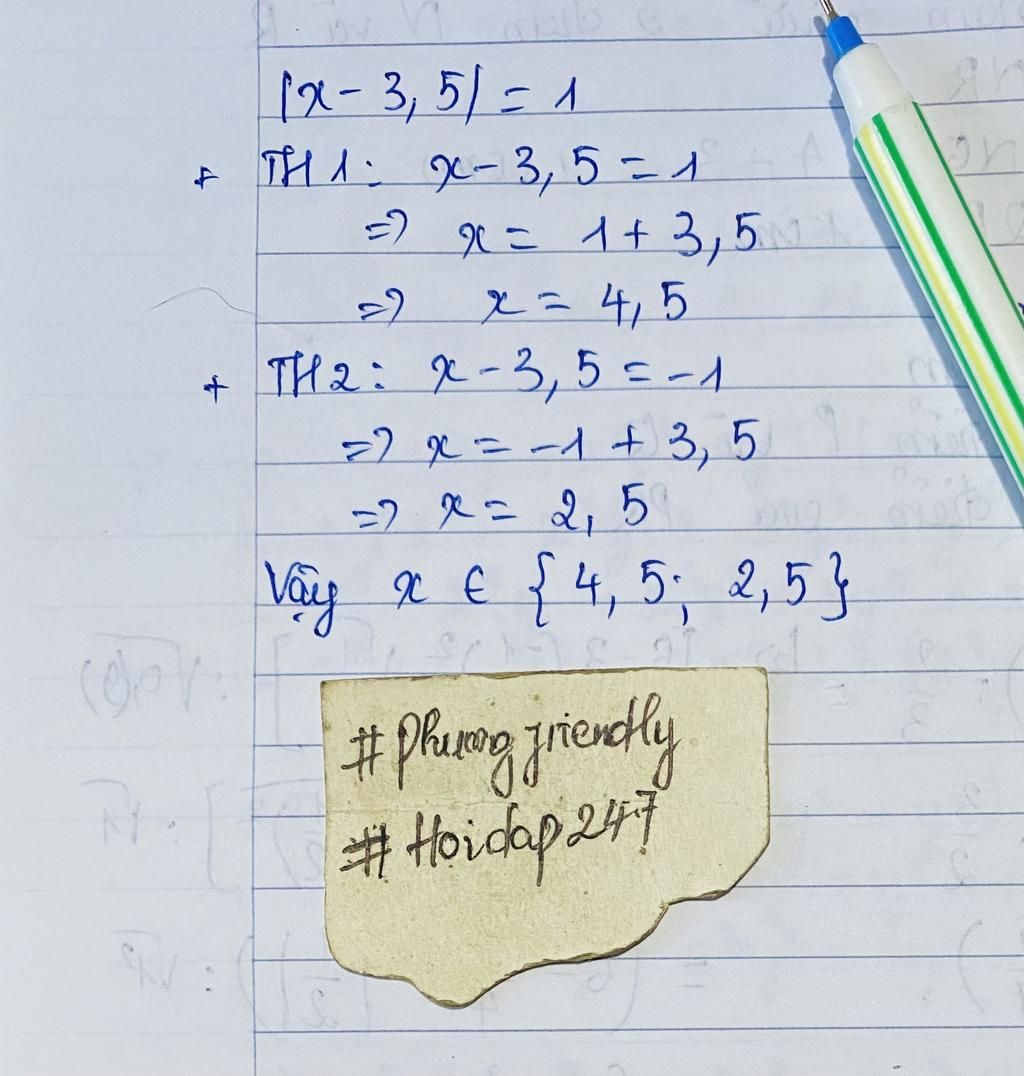 |x - 3,5| = 1
+ TH1: x - 3,5 = 1
=> x = 1 + 3,5
=> x = 4,5
+ TH2: x - 3,5 = -1
=> x = -1 + 3,5
=> x = 2,5
Vậy x ∈ {4,5; 2,5}
# Phuong friendly
# Hoidap247